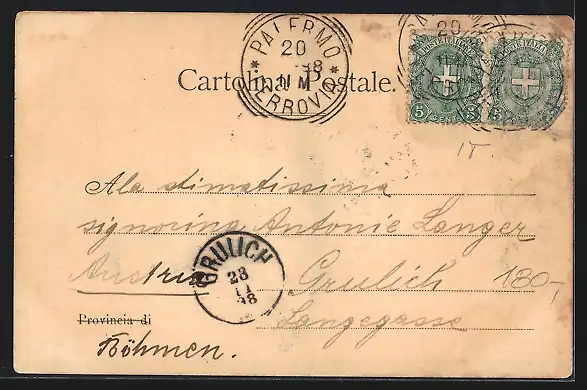 PALERMO
20
98
11 M
FERROVIA
Cartolina Postale.
20
POSTE ITALIANE
5 CENT. 5
POSTE ITALIANE
5 CENT.
IT.
Alla stimatissima
signorina Antonie Langer
Austria Grulich 180,-
GRULICH
23
11
98
Langegasse
Provincia di
Böhmen.